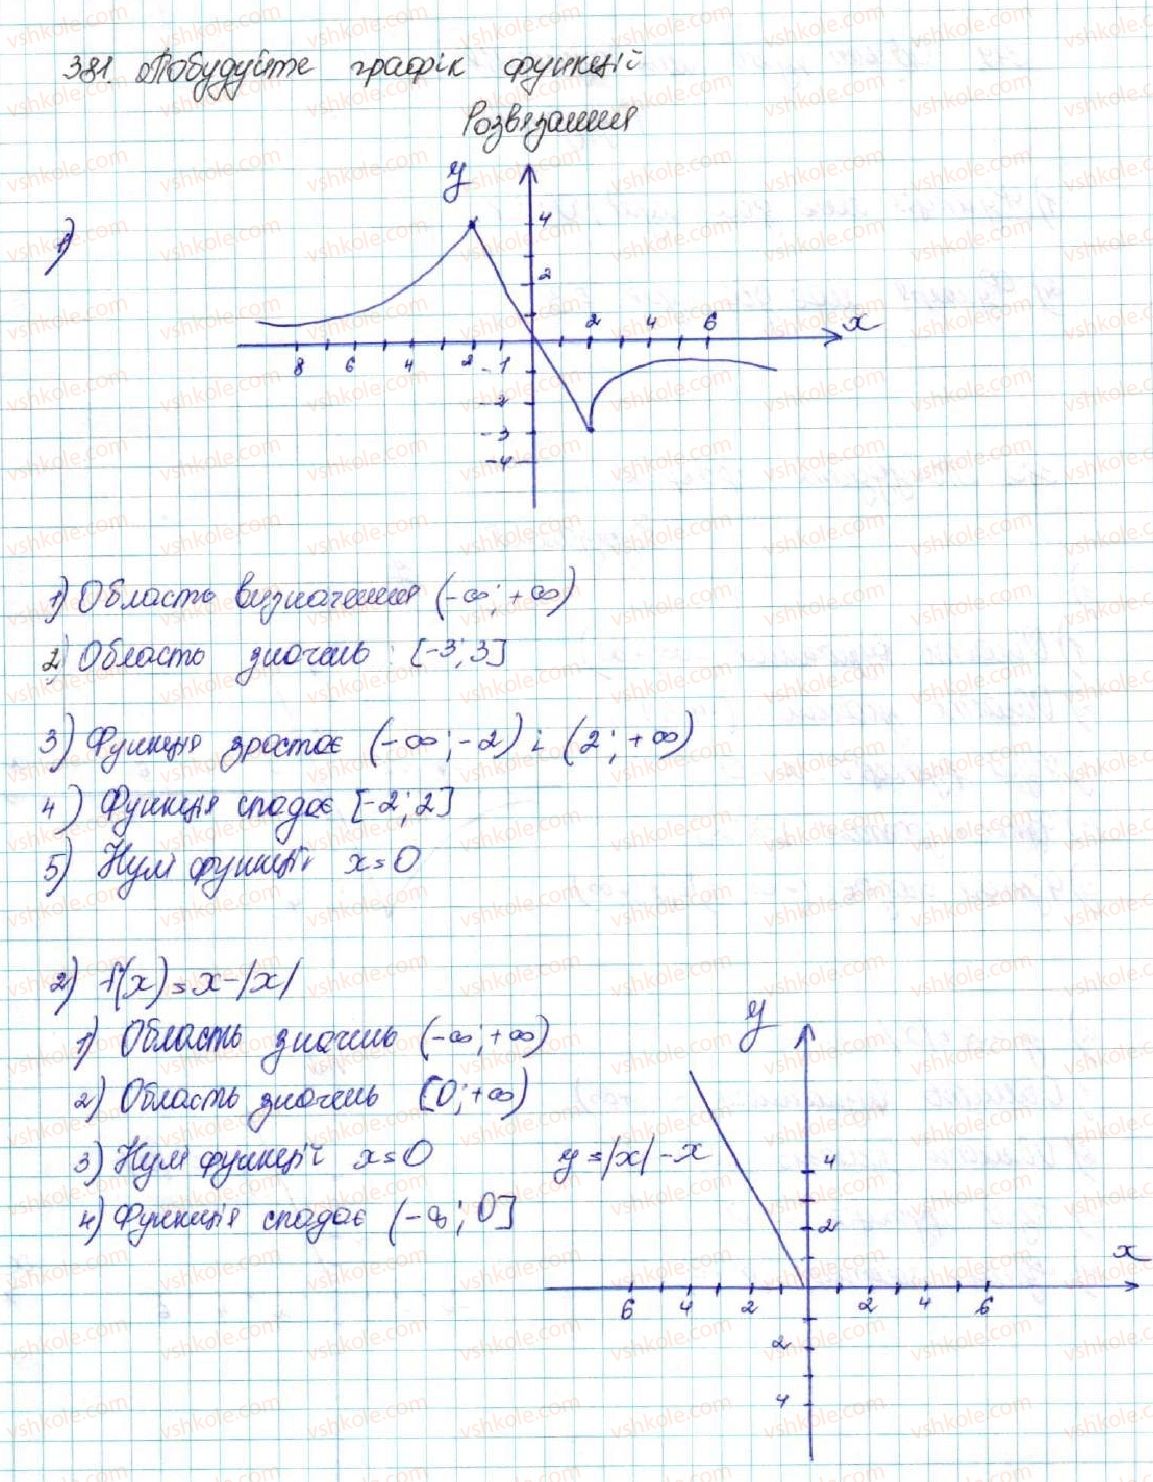 381. Побудуйте графік функції
Розвязання
1)
y
4
2
2 4 6 x
8 6 4 2 -1
-2
-3
-4
1) Область визначення (-∞; +∞)
2) Область значень: [-3; 3]
3) Функція зростає (-∞; -2) і (2; +∞)
4) Функція спадає [-2; 2]
5) Нулі функції x=0
2) f(x)=x-|x|
1) Область значень (-∞; +∞)
2) Область значень [0; +∞)
3) Нулі функції x=0
4) Функція спадає (-∞; 0]
y
y=|x|-x
4
2
x
6 4 2 2 4 6
2
4